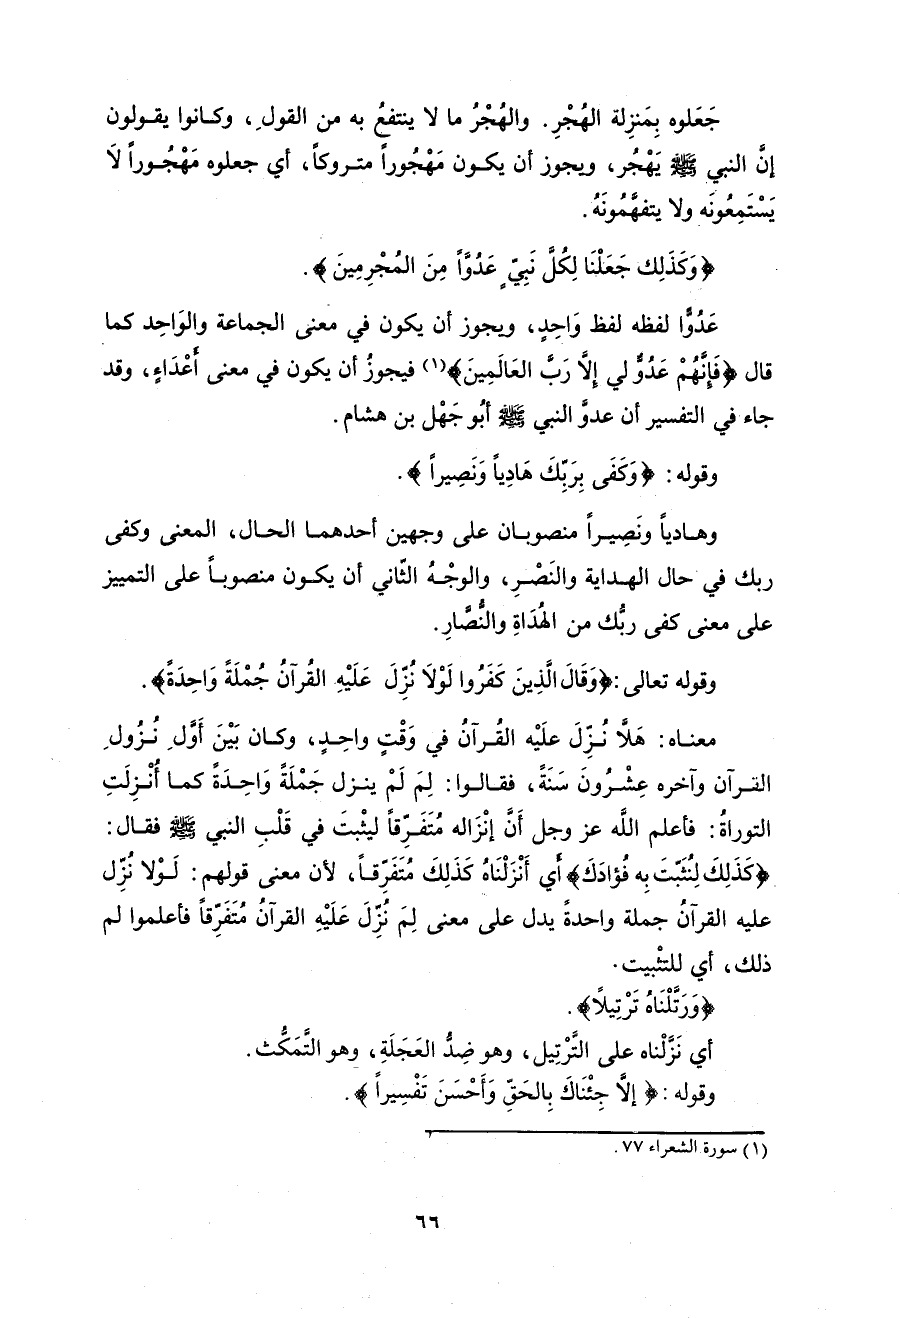 جَعَلوه بِمَنزِلة الهُجْرِ. والهُجْرُ ما لا ينتفعُ به من القولِ، وكانوا يقولون
إنَّ النبي ﷺ يَهْجُر، ويجوز أن يكون مَهْجُوراً متروكاً، أي جعلوه مَهْجُوراً لَا
يَسْتَمِعُونَه ولا يتفهَّمُونَهُ.
﴿وَكَذَلِك جَعَلْنَا لِكُلِّ نَبِيٍّ عَدُوًّا مِنَ المُجْرِمِينَ﴾.
عَدُوًّا لفظه لفظ وَاحِدٍ، ويجوز أن يكون في معنى الجماعة والوَاحِد كما
قال ﴿فَإِنَّهُمْ عَدُوٌّ لي إلاَّ رَبَّ العَالَمِينَ﴾(١) فيجوزُ أن يكون في معنى أَعْدَاءٍ، وقد
جاء في التفسير أن عدوَّ النبي ﷺ أبُو جَهْل بن هشام.
وقوله: ﴿وَكَفَى بِرَبِّكَ هَادِياً وَنَصِيراً﴾.
وهادياً ونَصِيراً منصوبان على وجهين أحدهما الحال، المعنى وكفى
ربك في حال الهداية والنَصْرِ، والوجْهُ الثّاني أن يكون منصوباً على التمييز
على معنى كفى ربُّك من الهُدَاةِ والنُّصَّارِ.
وقوله تعالى:﴿وَقَالَ الَّذِينَ كَفَرُوا لَوْلَا نُزِّلَ عَلَيْهِ القُرآنُ جُمْلَةً وَاحِدَةً﴾.
معناه: هَلَّا نُزِّلَ عليْه القُرآنُ في وَقْتٍ واحِدٍ، وكان بَيْنَ أَوَّلِ نُزُولِ
القرآن وآخره عِشْرُونَ سَنَةً، فقالوا: لِمَ لَمْ ينزل جَمْلَةً وَاحِدَةً كما أُنْزِلَتِ
التوراةُ: فأعلم اللَّه عز وجل أَنَّ إنْزَاله مُتَفَرِّقاً ليثْبتَ في قَلْبِ النبي ﷺ فقال:
﴿كَذَلِكَ لِنُثَبِّتَ بِه فُؤَادَكَ﴾ أي أَنْزَلْنَاهُ كَذَلِكَ مُتَفَرِّقاً، لأن معنى قولهم: لَوْلا نُزِّل
عليه القرآنُ جملة واحدةً يدل على معنى لِمَ نُزِّلَ عَلَيْهِ القرآنُ مُتَفَرِّقاً فأعلموا لم
ذلك، أي للتثْبيت.
﴿وَرَتَّلْنَاهُ تَرْتِيلًا﴾.
أي نَزَّلْناه على التَّرْتِيل، وهو ضِدُّ العَجَلَةِ، وهو التَّمَكُّث.
وقوله:﴿إلَّا جِئْنَاكَ بِالحَقِّ وَأَحْسَنَ تَفْسِيراً﴾.
(١) سورة الشعراء ٧٧.
٦٦